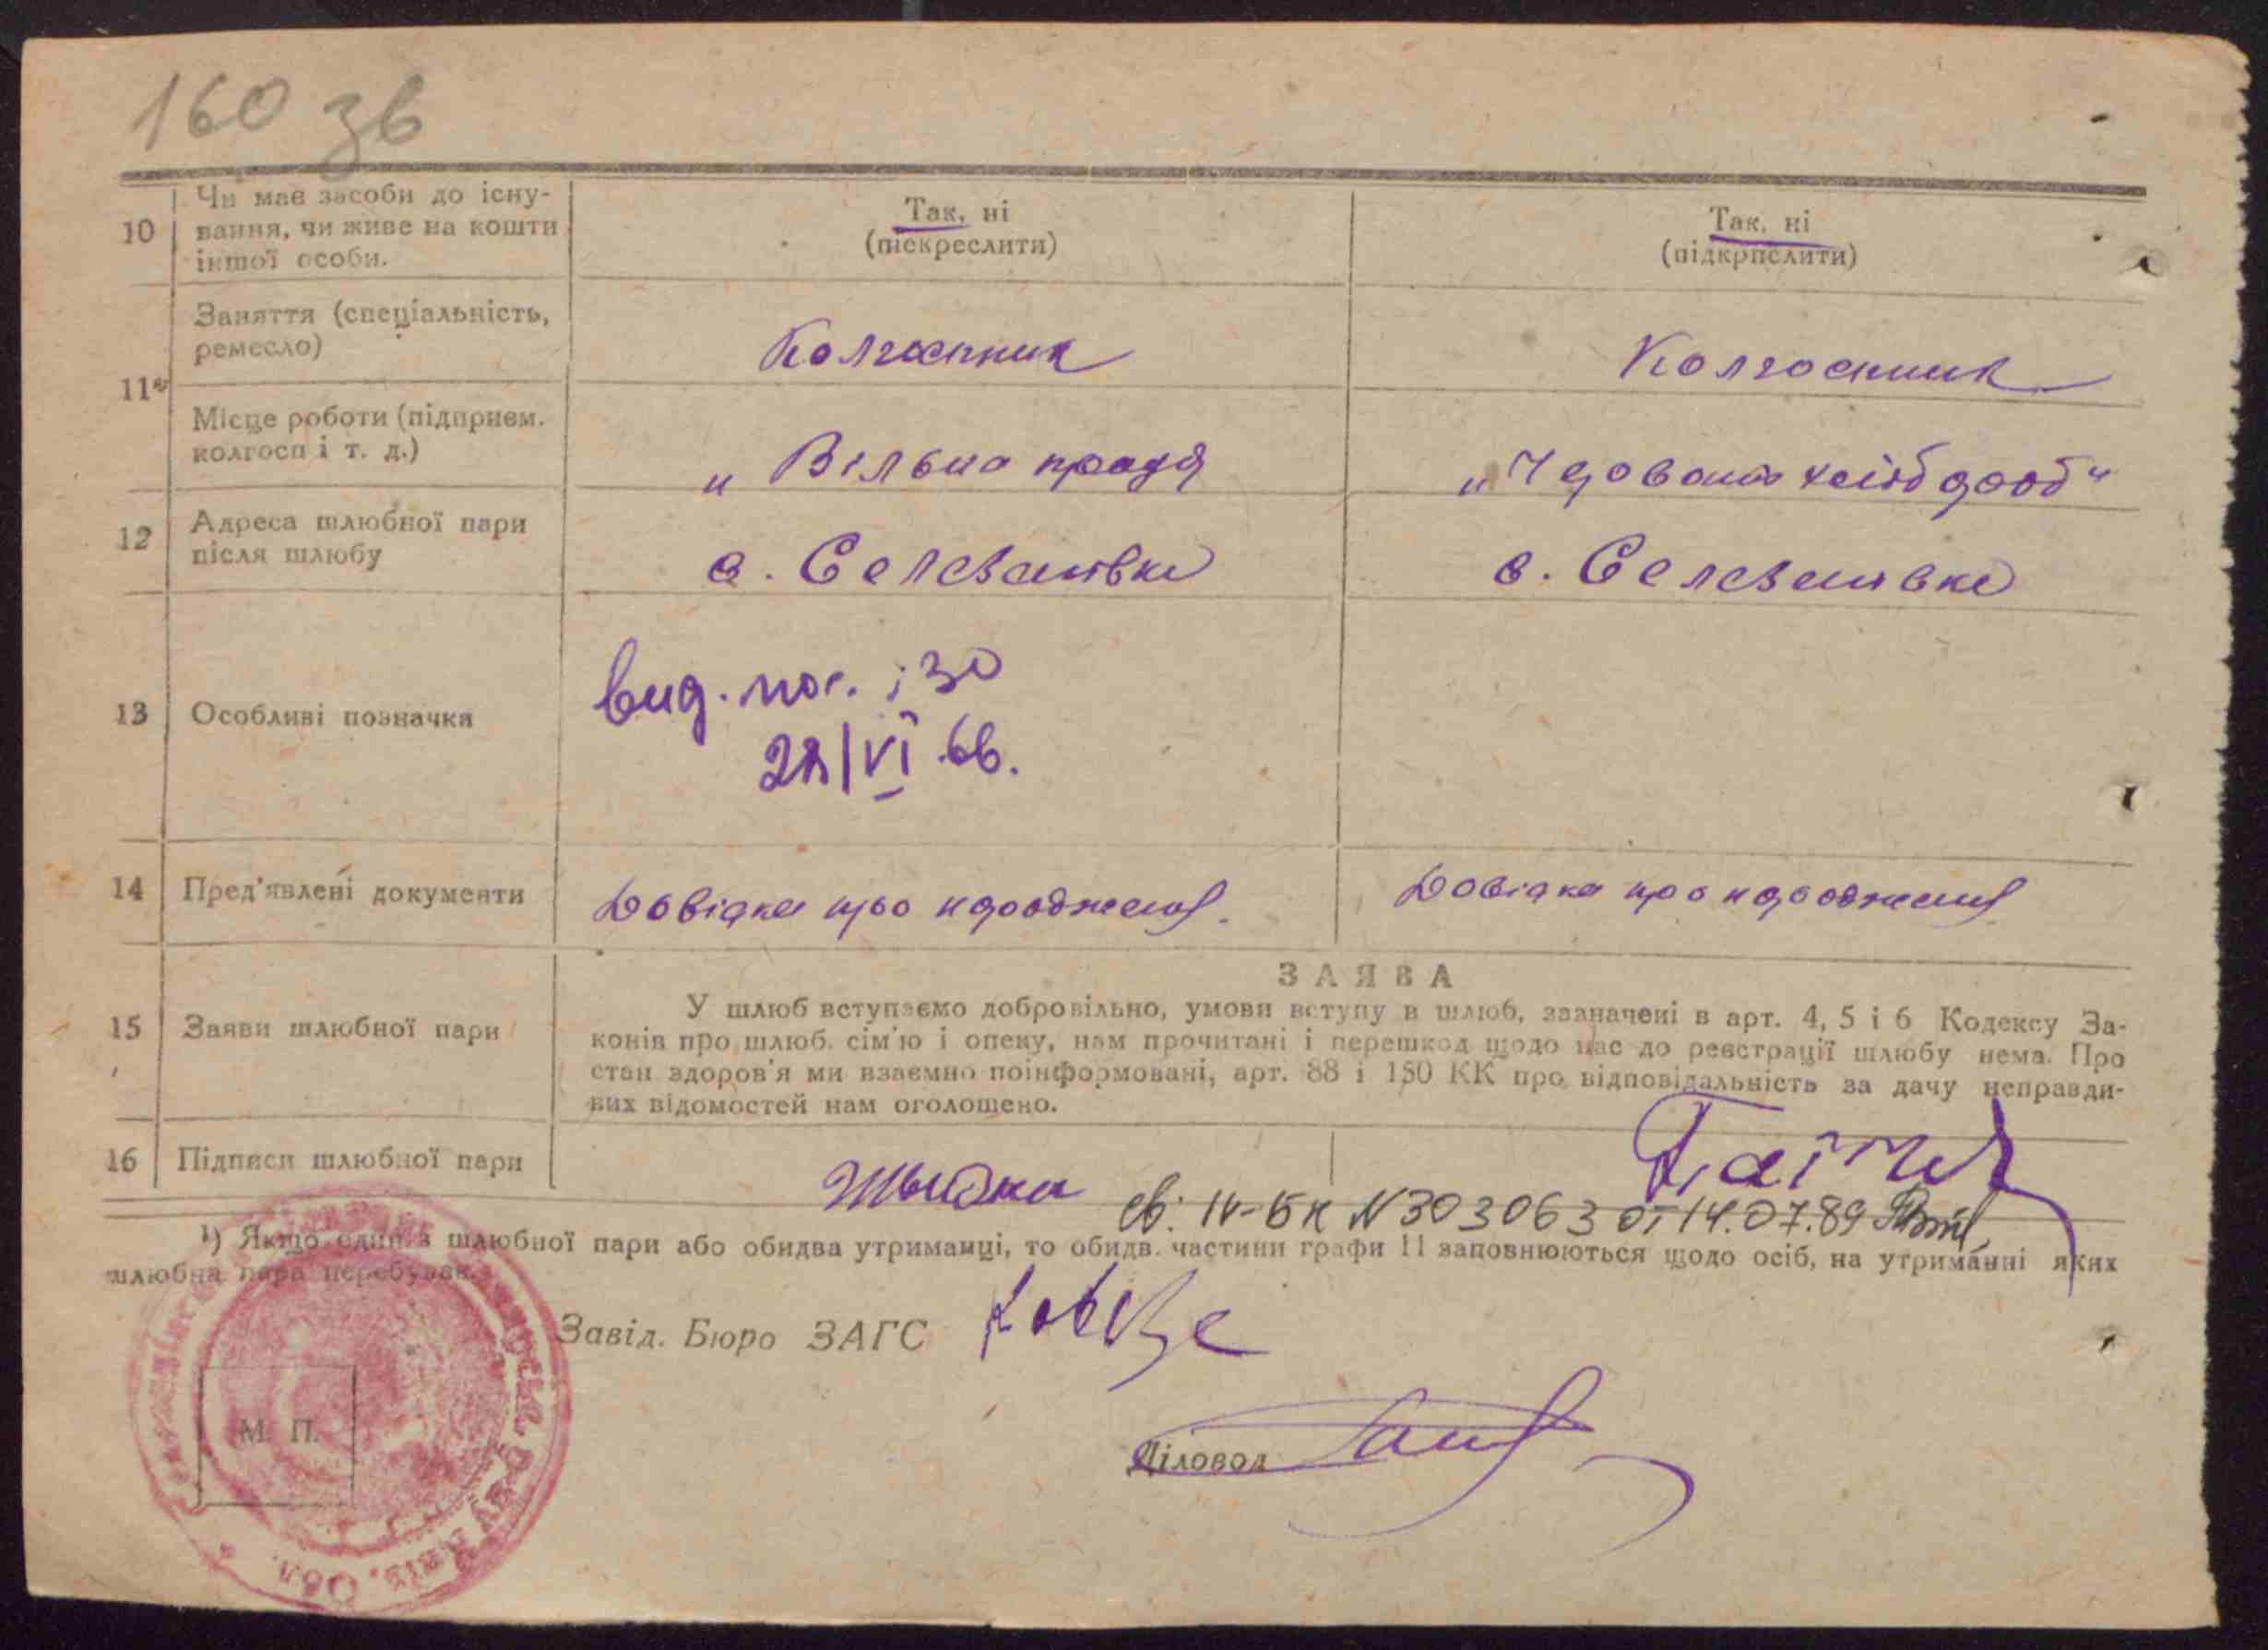 160 зв
10 Чи має засоби до існу-
вання, чи живе на кошти
іншої особи.
Так, ні
(піскреслити)
Так, ні
(підкрпслити)
11
Заняття (спеціальність,
ремесло)
Колгоспник
Колгоспник
Місце роботи (підприєм.
колгосп і т. д.)
„Вільна праця
„Червоний хлібороб“
12 Адреса шлюбної пари
після шлюбу
с. Селезнівка
с. Селезнівка
13 Особливі позначки
вид. пов.
VI 66.
14 Пред'явлені документи
Довідка про народження.
Довідка про народження
ЗАЯВА
15 Заяви шлюбної пари
У шлюб вступаємо добровільно, умови вступу в шлюб, зазначені в арт. 4, 5 і 6 Кодексу За-
конів про шлюб, сім'ю і опеку, нам прочитані і перешкод щодо нас до реєстрації шлюбу нема. Про
стан здоров'я ми взаємно поінформовані, арт. 88 і 150 КК про відповідальність за дачу неправди-
вих відомостей нам оголошено.
16 Підписи шлюбної пари
св. IV-БК N303063 от 14.07.89
¹) Якщо один з шлюбної пари або обидва утриманці, то обидв. частини графи 11 заповнюються щодо осіб, на утриманні яких
шлюбна пара перебуває.
Завід. Бюро ЗАГС
М. П.
Діловод
Обл.